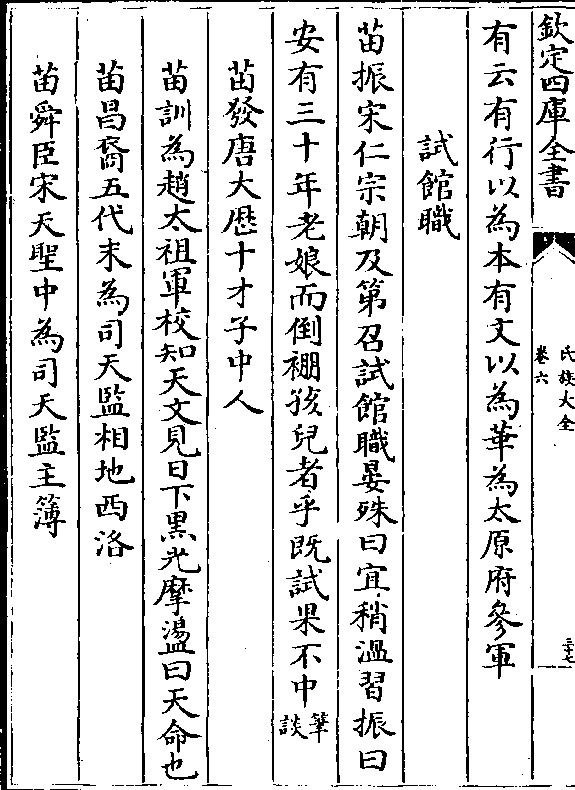 欽定四庫全書
氏族大全
卷六
三七
有云有行以為本有文以為華為太原府參軍
試館職
苗振宋仁宗朝及第召試館職晏殊曰宜稍溫習振曰
安有三十年老娘而倒繃孩兒者乎既試果不中筆談
苗發唐大歷十才子中人
苗訓為趙太祖軍校知天文見日下黒光摩盪曰天命也
苗昌裔五代末為司天監相地西洛
苗舜臣宋天聖中為司天監主簿